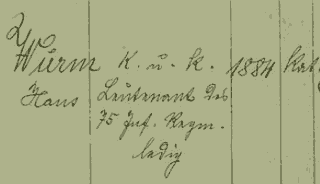 2
Wurm K. u. k. 1884 kat
Hans Leutenant des
75 Inf. Regm.
ledig